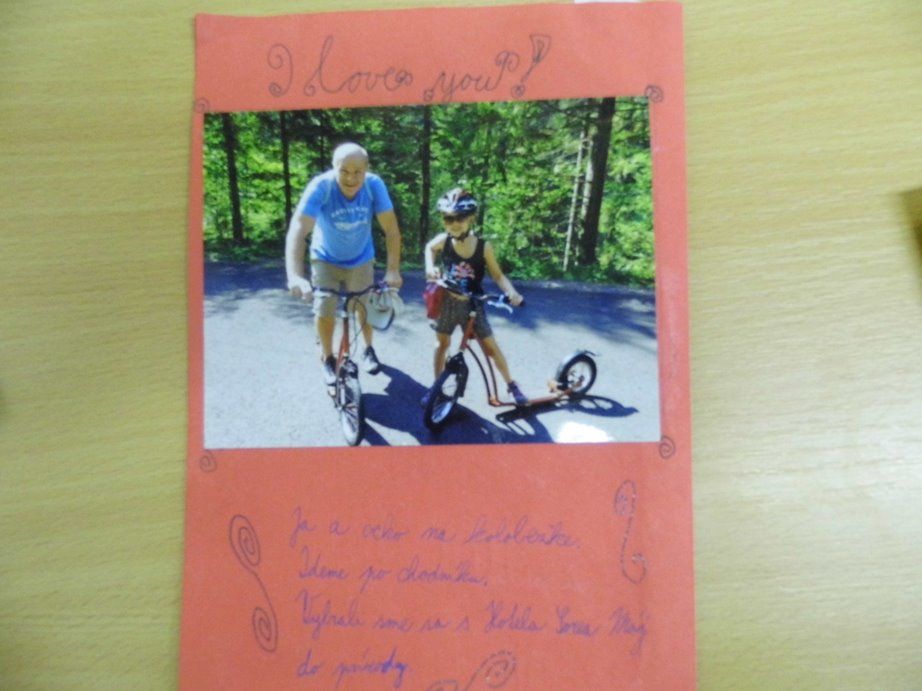 I love you!
Ja a ocko na kolobežke.
Ideme po chodníku.
Vybrali sme sa s Hotela Sorea Máj
do prírody.